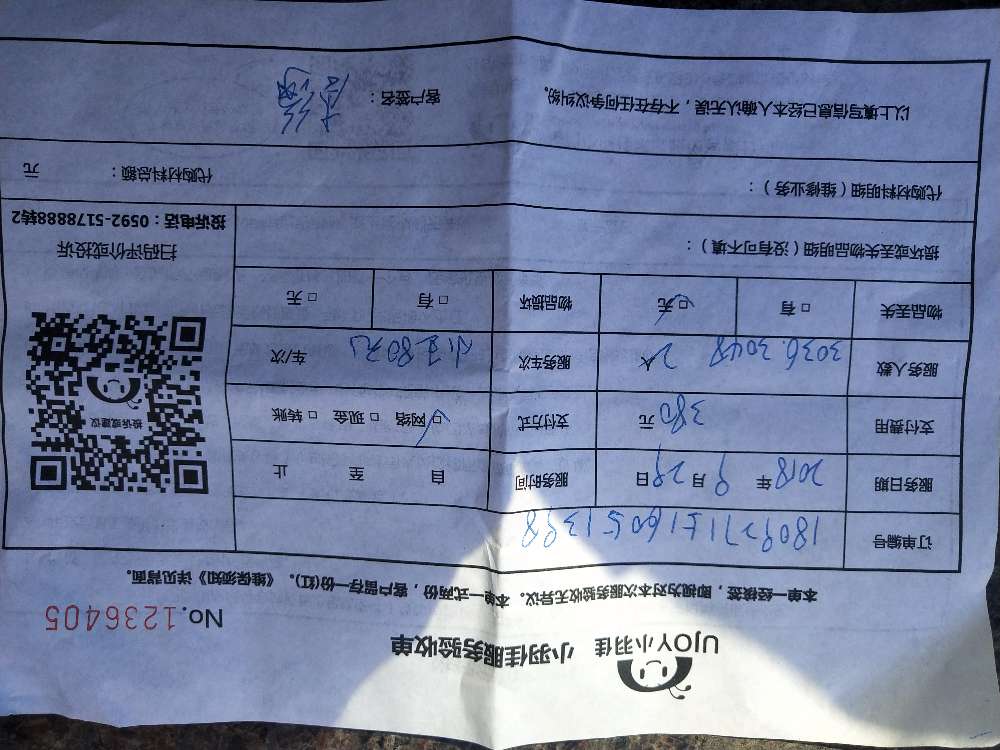 UJOY小羽佳 小羽佳服务验收单
No.1236405
本单一经核签，即视为对本次服务验收无异议。本单一式两份，客户留存一份(红)。《维保须知》详见背面。
订单编号
服务日期 2018 年 9 月 29 日 服务时间 自 至 止
支付费用 380 元 支付方式 ☑ 网络 □ 现金 □ 转账
服务人数 3036.3048 2 人 服务车次 80元 车/次
物品丢失 □ 有 ☑ 无 物品损坏 □ 有 □ 无
投诉或建议
扫码评价或投诉
投诉电话：0592-5178888转2
损坏或丢失物品明细（没有可不填）：
代购材料明细（维修业务）： 代购材料总额： 元
以上填写信息已经本人确认无误，不存在任何争议纠纷。 客户签名：